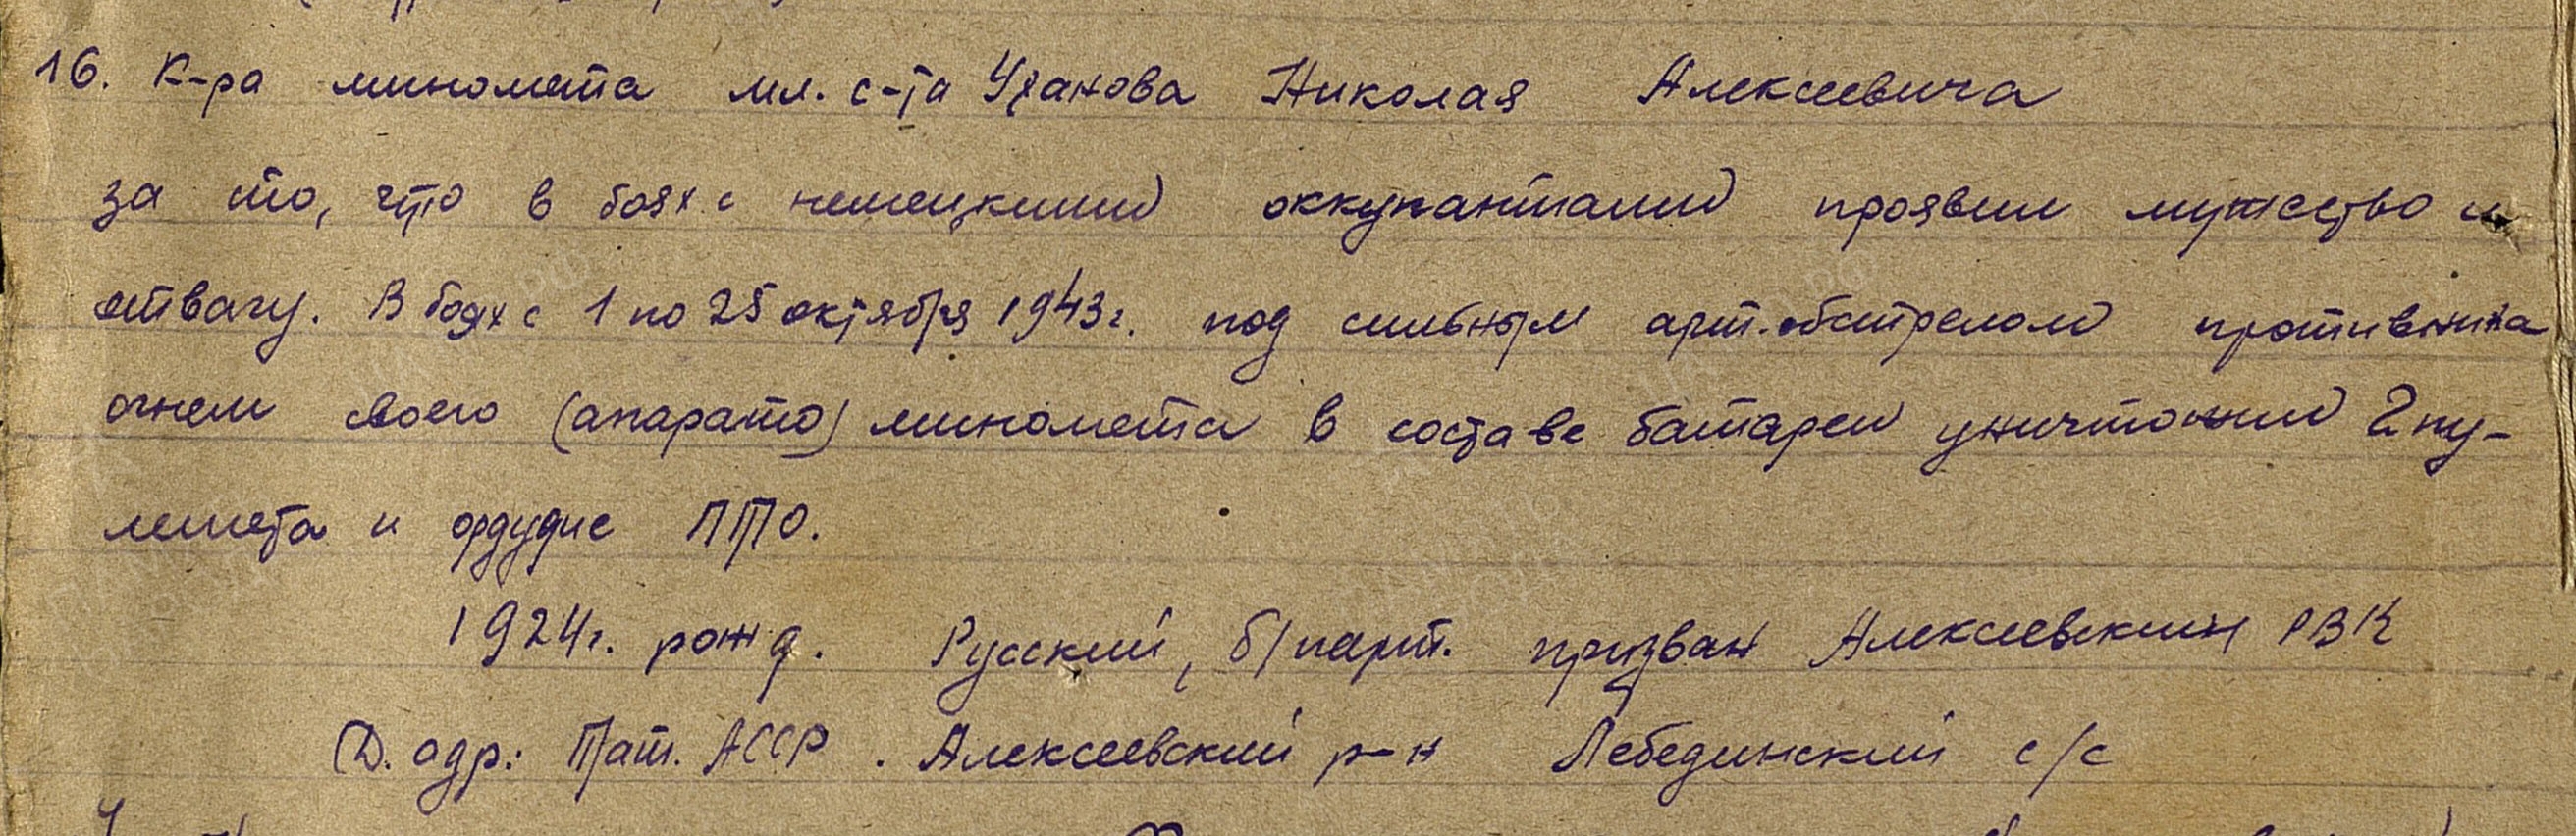 16. К-ра миномета мл. с-та Уханова Николая Алексеевича
за то, что в боях с немецкими оккупантами проявил мужество и
отвагу. В боях с 1 по 25 октября 1943г. под сильным арт. обстрелом противника
огнем своего (апарато) миномета в составе батареи уничтожил 2 пу-
лемета и орудие ПТО.
1924г. рожд. Русский, б/парт. призван Алексеевским РВК
Д. адр: Тат. АССР. Алексеевский р-н Лебединский с/с